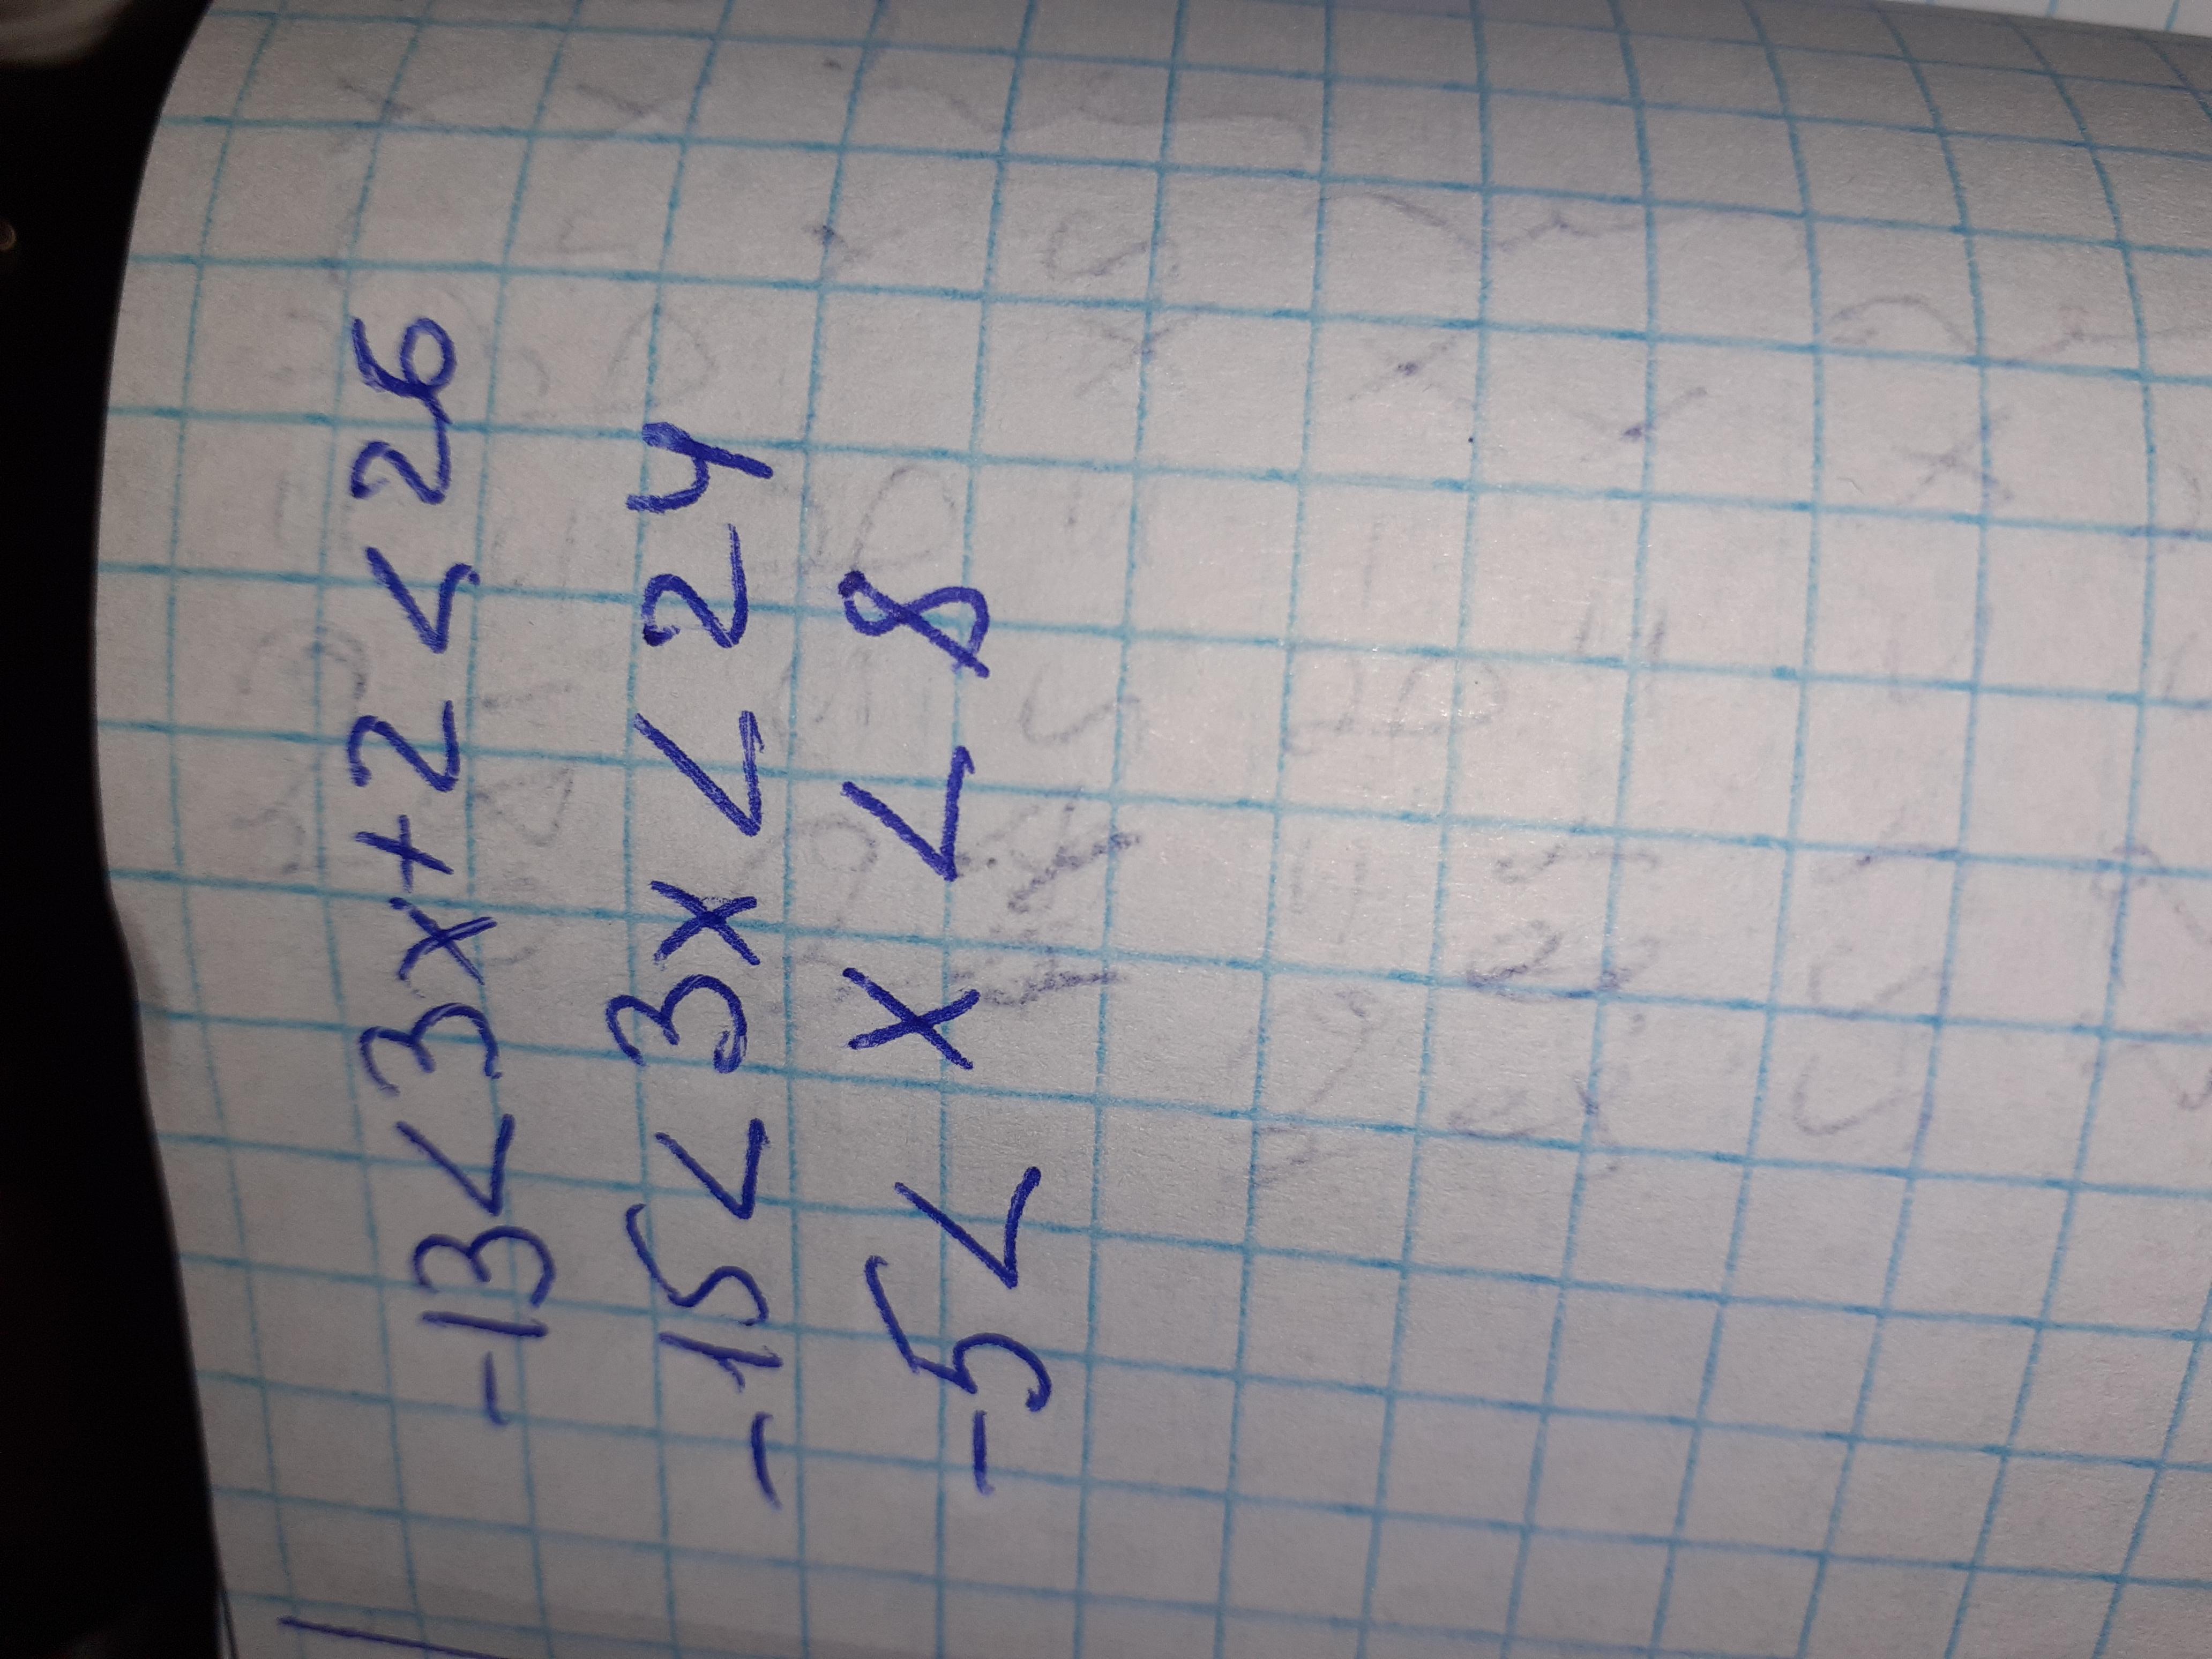 -13<3x+2<26
-15<3x<24
-5<x<8